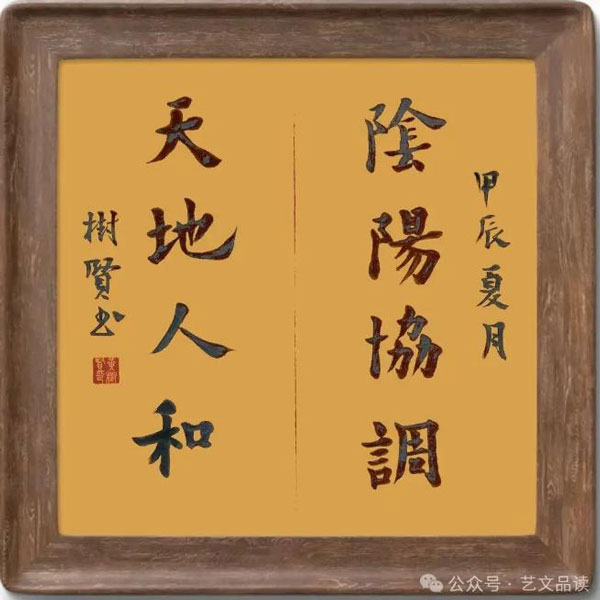 甲辰夏月
陰陽協調
天地人和
樹賢书
公众号·艺文品读